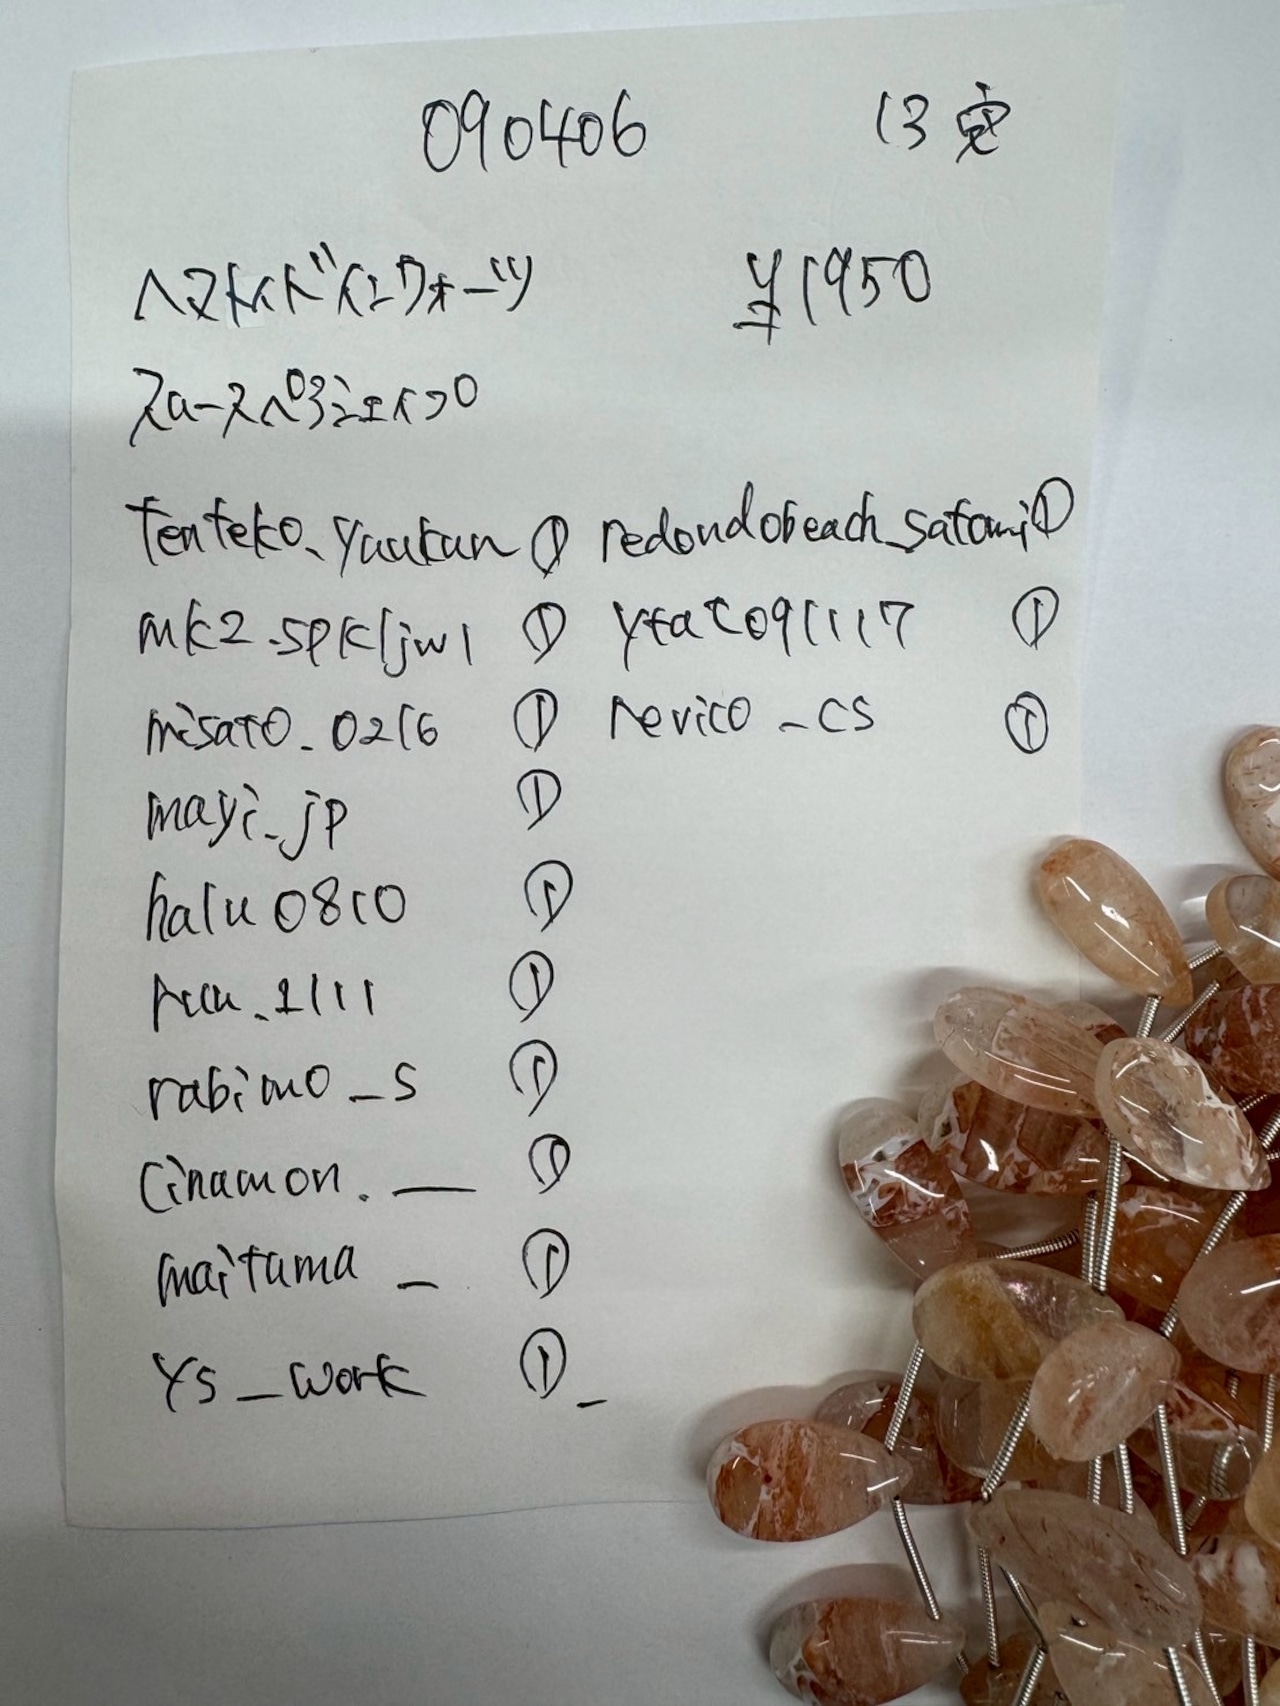 090406 13完
ヘマトイドインクォーツ ¥1950
スムースペアシェイプ
tenteko_yuukun ① redondobeach_satomi ①
mk2.spkljw1 ① ytat091117 ①
misato_0216 ① revico_cs ①
mayi_jp ①
halu0810 ①
①
rabimo_s ①
cinamon.__ ①
maitama_ ①
ys_work ①_